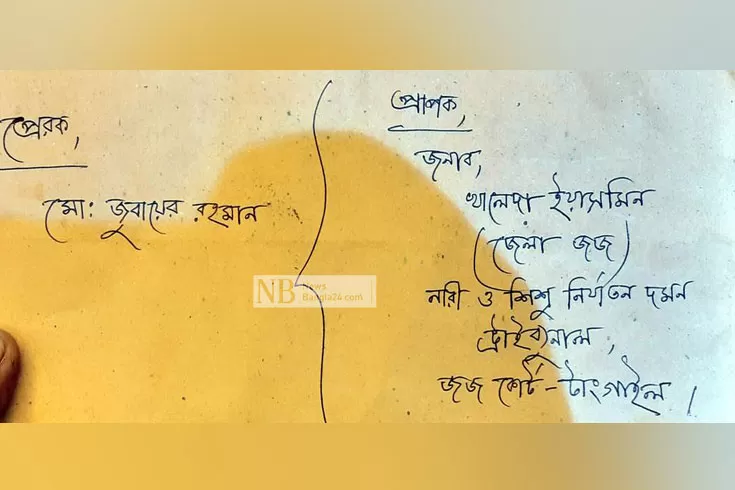 প্রেরক,
মো: জুবায়ের রহমান
প্রাপক,
জনাব,
খালেদা ইয়াসমিন
(জেলা জজ)
নারী ও শিশু নির্যাতন দমন
ট্রাইবুনাল,
জজ কোর্ট - টাংগাইল।
NB News
Bangla24.com